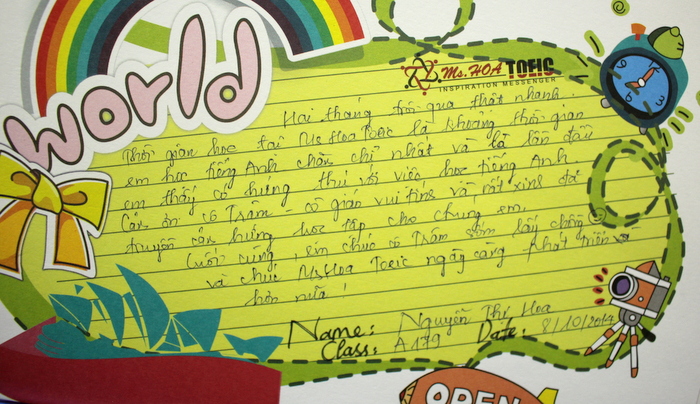 world
Ms. HOA TOEIC
INSPIRATION MESSENGER
Hai tháng trôi qua thật nhanh.
Thời gian học tại Ms Hoa Toeic là khoảng thời gian
em học tiếng Anh chăm chỉ nhất và là lần đầu
em thấy có hứng thú với việc học tiếng Anh.
Cảm ơn cô Trâm - cô giáo vui tính và rất xinh đã
truyền cảm hứng học tập cho chúng em.
Cuối cùng, em chúc cô Trâm sớm lấy chồng
và chúc Ms Hoa Toeic ngày càng phát triển
hơn nữa!
Name: Nguyễn Thị Hoa
Class: A179 Date: 8/10/2014
OPEN